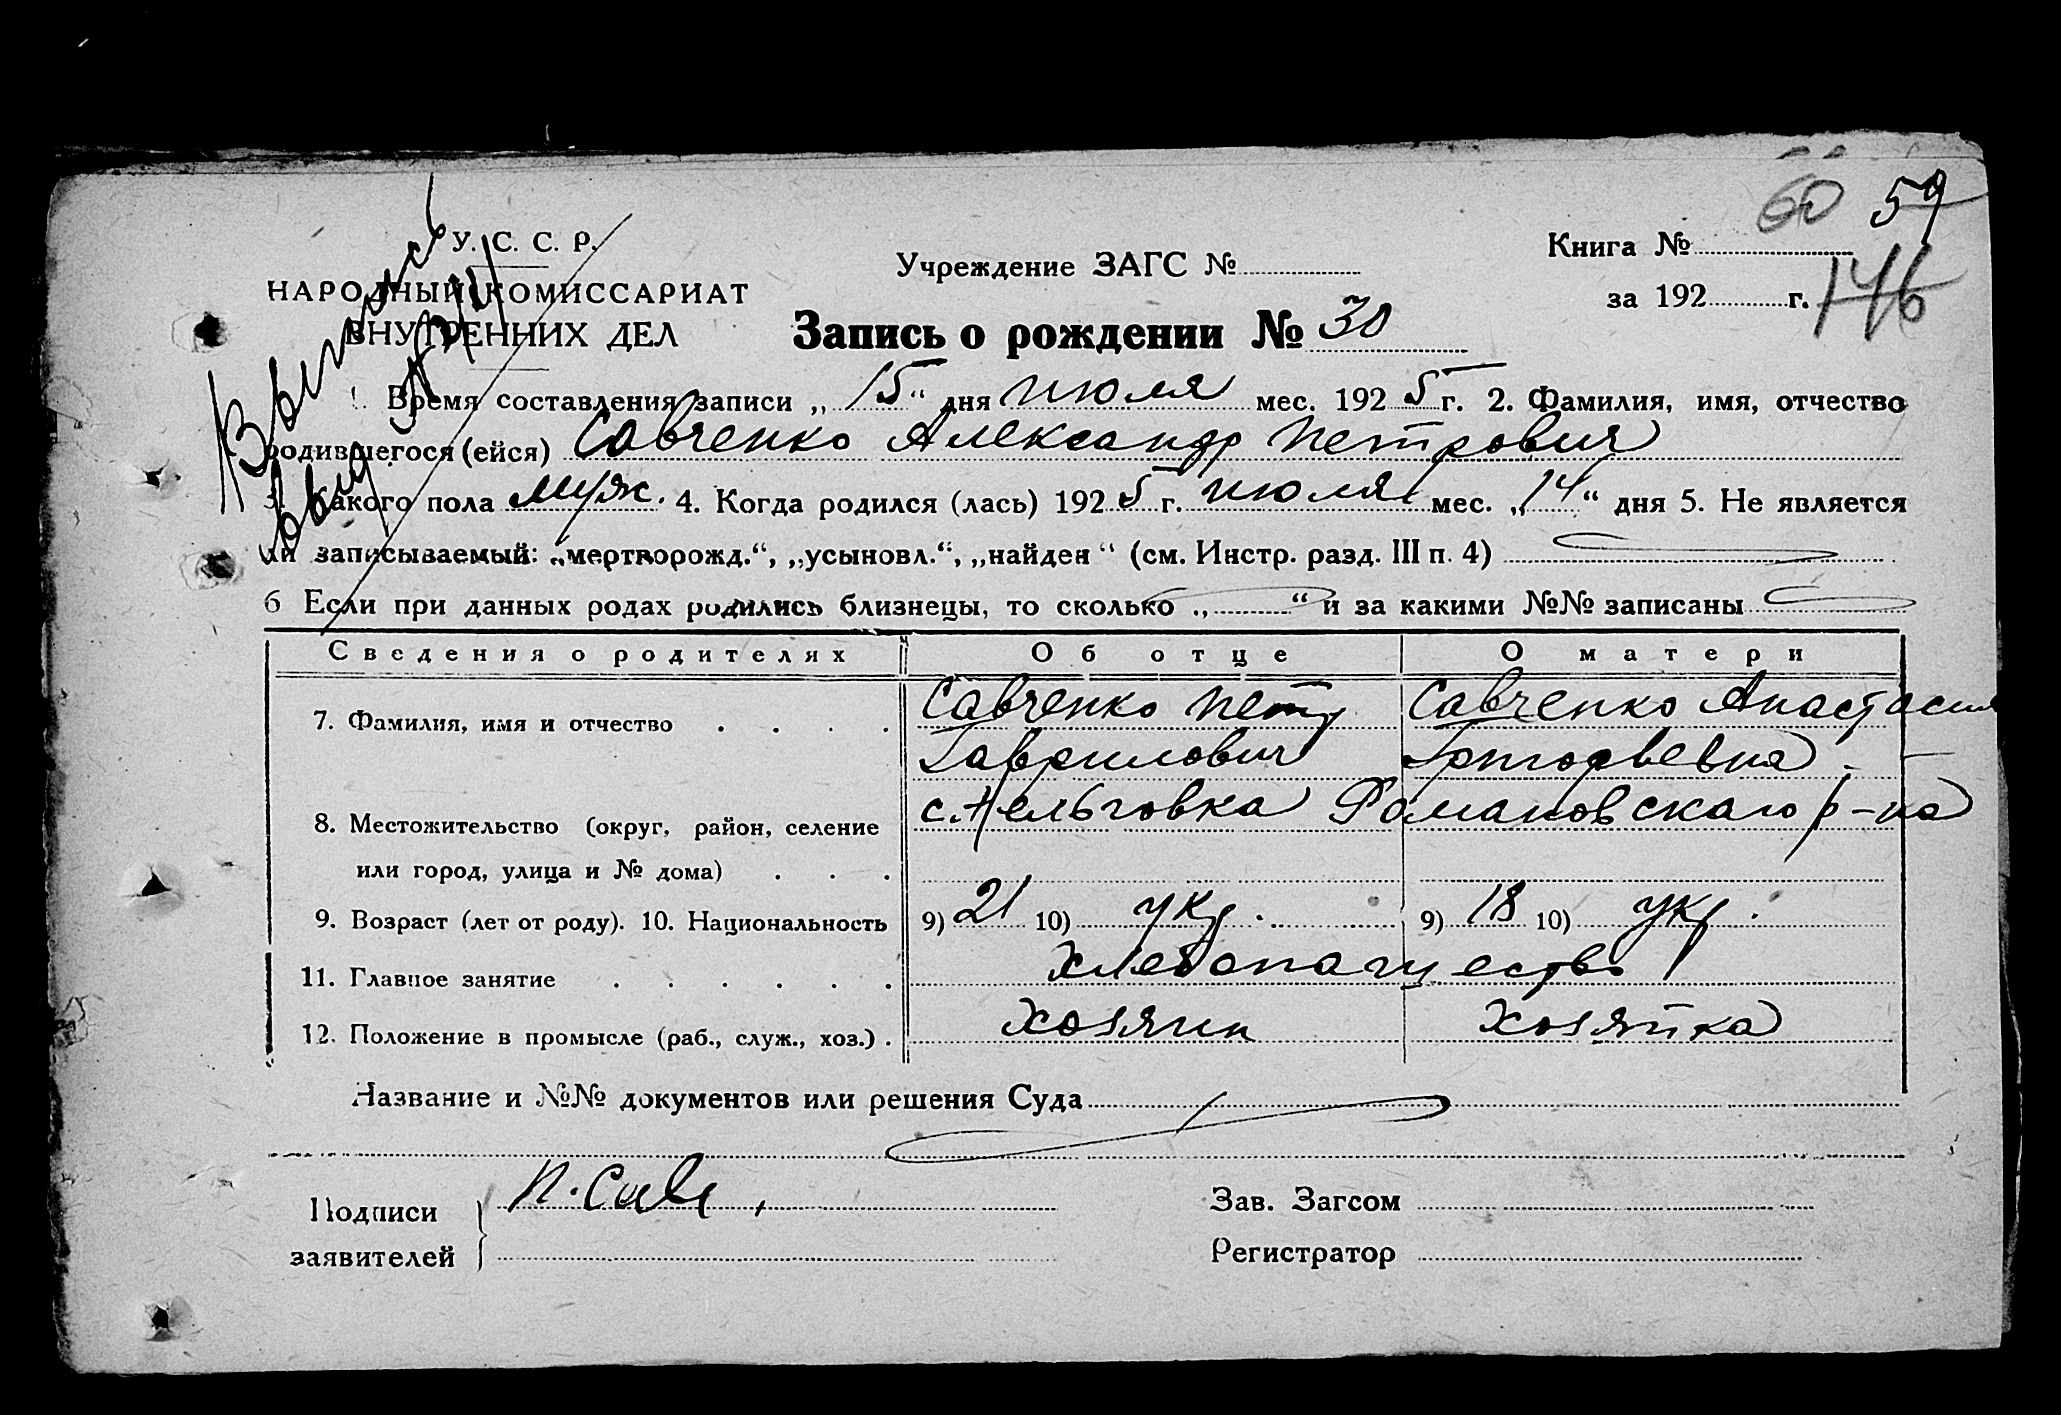 60 59
У. С. С. Р.
НАРОДНЫЙ КОМИССАРИАТ
ВНУТРЕННИХ ДЕЛ
Учреждение ЗАГС №
Книга №
за 192 г. 146
Запись о рождении № 30
Выпись
1. Время составления записи „ 15 “ дня июля мес. 192 5 г. 2. Фамилия, имя, отчество
родившегося (ейся) Савченко Александр Петрович
3. Какого пола муж. 4. Когда родился (лась) 192 5 г. июля мес. „ 14 “ дня 5. Не является
ли записываемый: „мертворожд.“, „усыновл.“, „найден“ (см. Инстр. разд. III п. 4)
6 Если при данных родах родились близнецы, то сколько „ “ и за какими №№ записаны
Сведения о родителях Об отце О матери
7. Фамилия, имя и отчество Савченко Петр Савченко Анастасия
Гаврилович Григорьевна
8. Местожительство (округ, район, селение с. Романовскаго р-на
или город, улица и № дома)
9. Возраст (лет от роду). 10. Национальность 9) 21 10) укр. 9) 18 10) укр.
11. Главное занятие Хлебопашество
12. Положение в промысле (раб., служ., хоз.) . Хозяин Хозяйка
Название и №№ документов или решения Суда
Подписи П. Сав
заявителей
Зав. Загсом
Регистратор